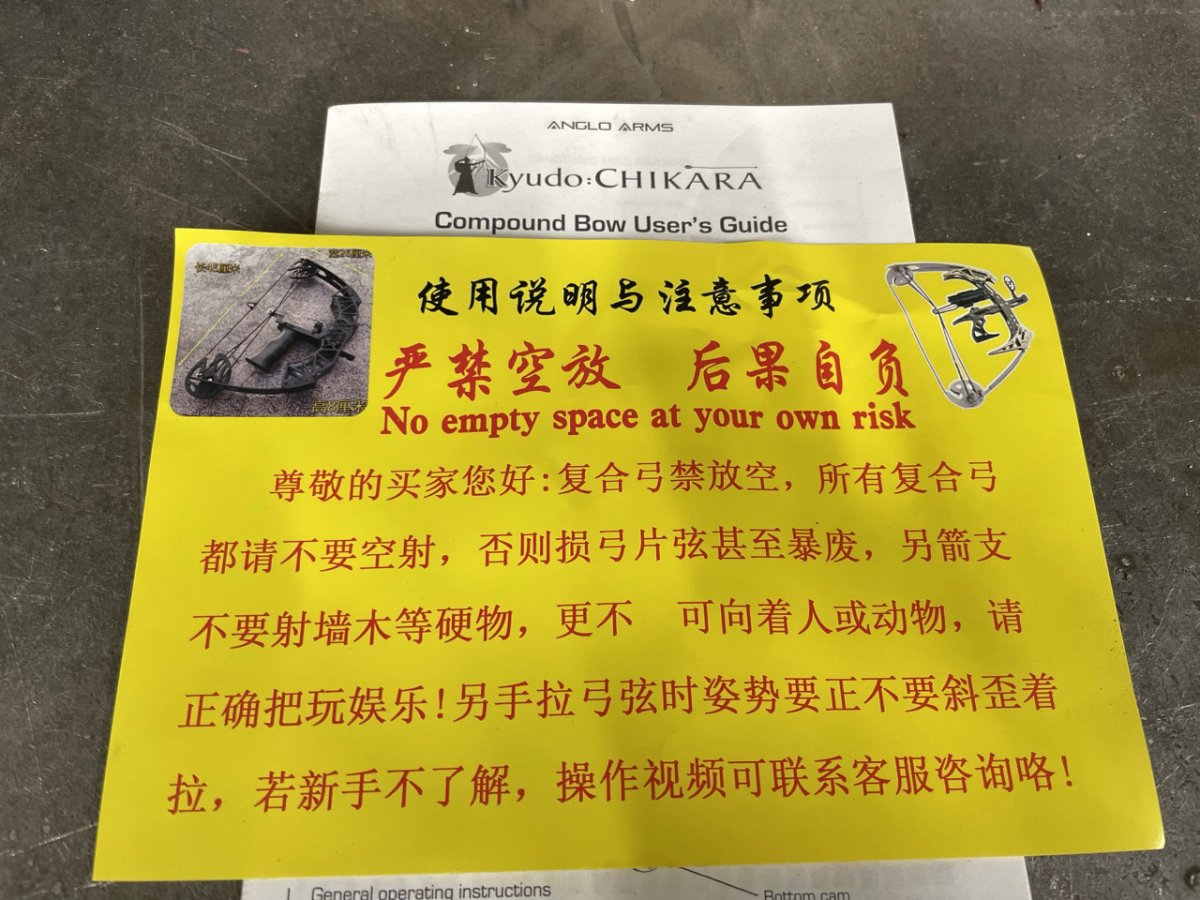 ANGLO ARMS
Kyudo:CHIKARA
Compound Bow User's Guide
使用说明与注意事项
严禁空放 后果自负
No empty space at your own risk
高8厘米
尊敬的买家您好:复合弓禁放空，所有复合弓
都请不要空射，否则损弓片弦甚至暴废，另箭支
不要射墙木等硬物，更不 可向着人或动物，请
正确把玩娱乐!另手拉弓弦时姿势要正不要斜歪着
拉，若新手不了解，操作视频可联系客服咨询咯!
General operating instructions
Bottom cam